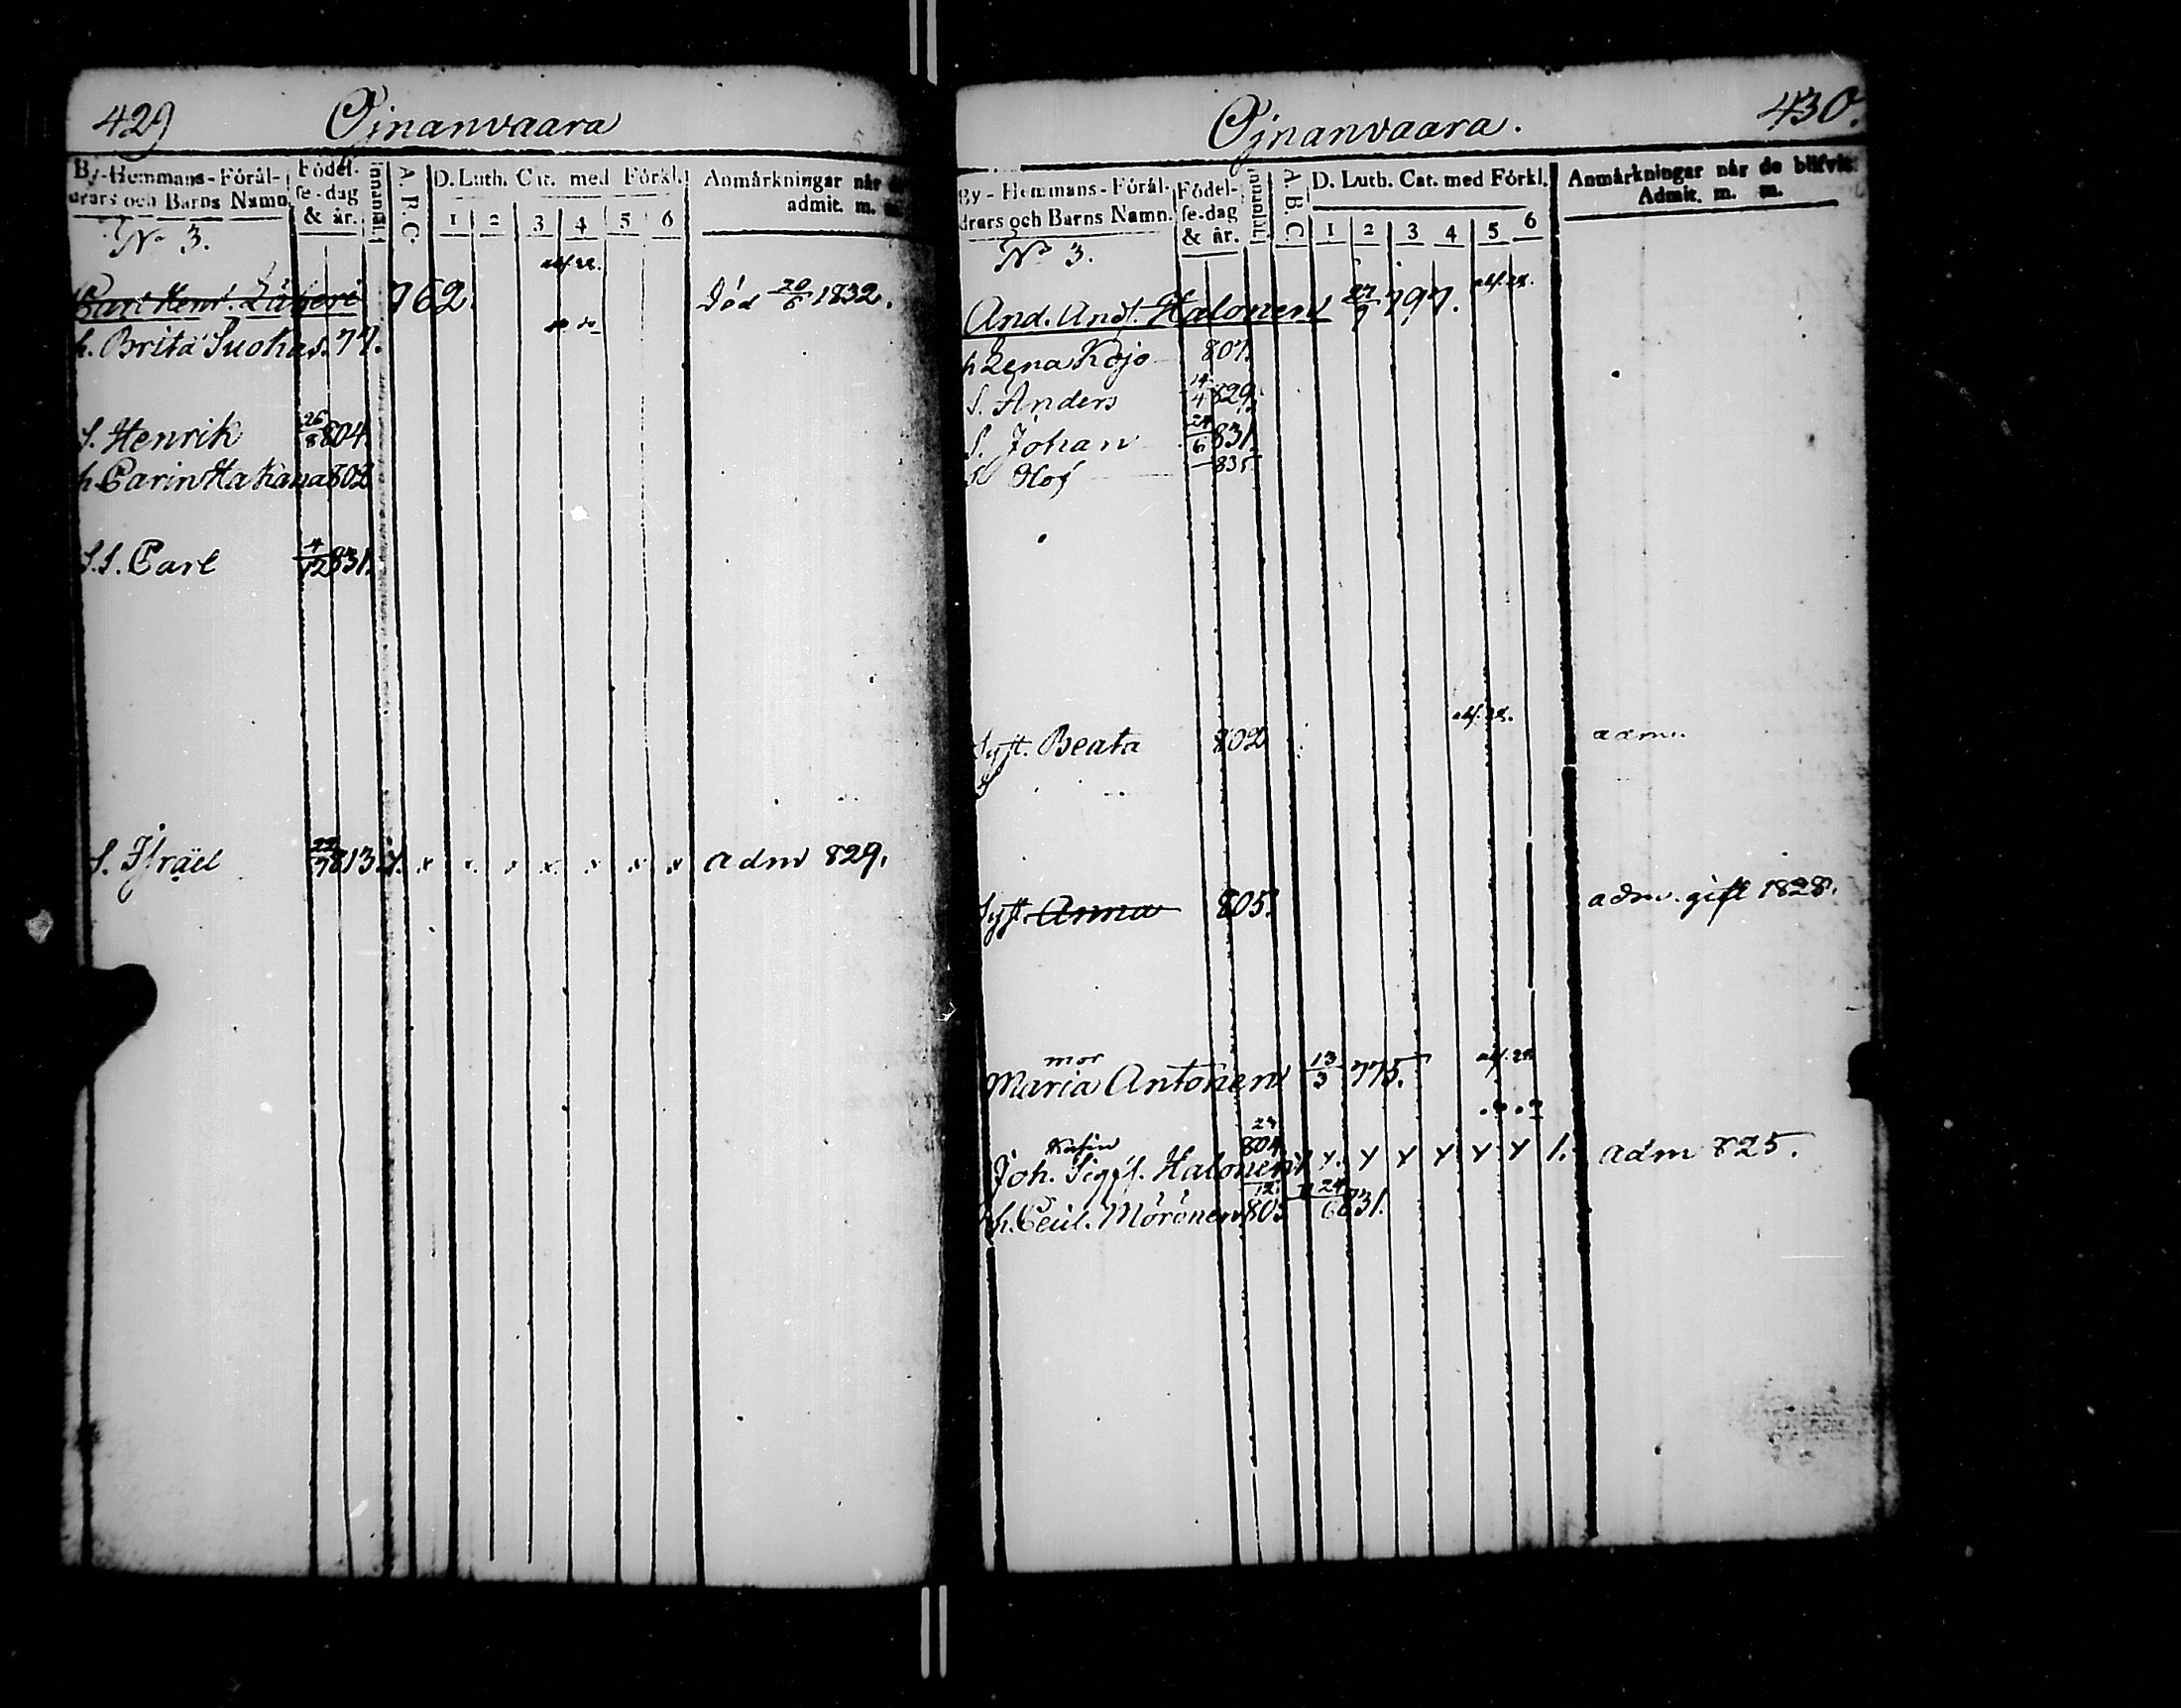 429 Ojnanvaara
By-Hemmans-Föräl-
drars och Barns Namn.
Födel-
se-dag
& år.
Innanläl.
A. B. C.
D. Luth. Cat. med Förkl.
1 2 3 4 5 6
Anmärkningar när de
admit. m. m.
No 3.
Carl Henr. 762. Död 20/6 1832.
h. Brita Suokas. 77.
S. Henrik 26/8 804.
h. Carin Hakana 802
S.S. Carl 4/12 831.
S. Israël 22/7 813. x x x x x x x adm 829.
Ojnanvaara. 430.
By-Hemmans-Föräl-
drars och Barns Namn.
Födel-
se-dag
& år.
Innanläl.
A. B. C.
D. Luth. Cat. med Förkl.
1 2 3 4 5 6
Anmärkningar när de blifvit
Admit. m. m.
No 3.
And. And.s. Halonen 27/9 797.
h Lena Kojo 807.
S. Anders 14/4 829.
S. Johan 24/6 831.
S Olof 835
Syst. Beata 802 adm.
Syst. Anna 805. adm. gift 1828.
mor
Maria Antonen 13/3 775.
Joh. Sigf.s. Halonen 804 adm 825.
h. Cecil. Mörönen 803 24/6 831.